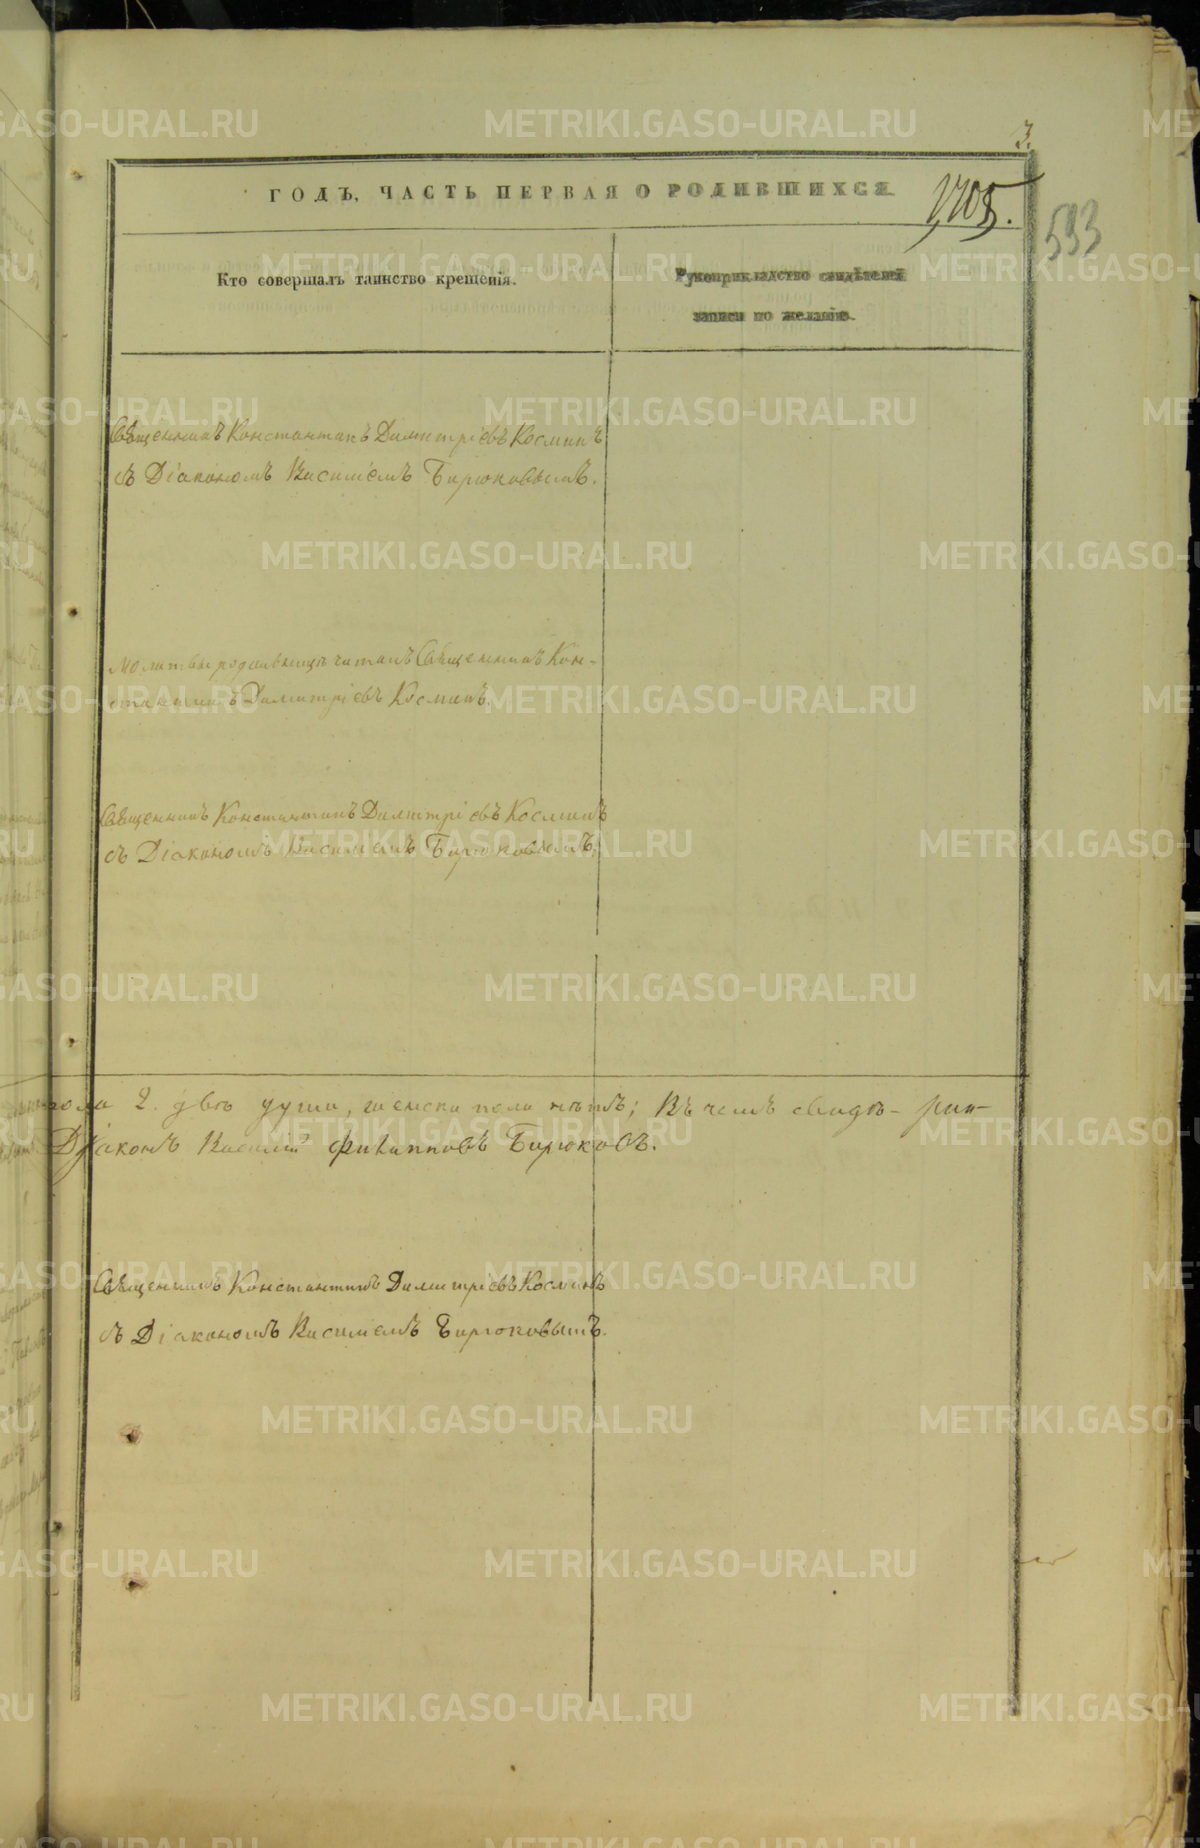 3.
ГОДЪ, ЧАСТЬ ПЕРВАЯ О РОДИВШИХСЯ
1705.
533
Кто совершалъ таинство крещенія.
Рукоприкладство свидѣтелей
записи по желанію.
Священникъ Константинъ Димитріевъ Косминъ
съ Діакономъ Василіемъ Бирюковымъ.
Молитвы родильницѣ читалъ Священникъ Кон-
стантинъ Димитріевъ Косминъ.
Священникъ Константинъ Димитріевъ Косминъ
съ Діакономъ Василіемъ Бирюковымъ.
пола 2. двѣ души, женска пола нѣтъ; Въ чемъ свидѣ-
Діаконъ Василій Филипповъ Бирюковъ.
Священникъ Константинъ Димитріевъ Косминъ
съ Діакономъ Василіемъ Бирюковымъ.
METRIKI.GASO-URAL.RU